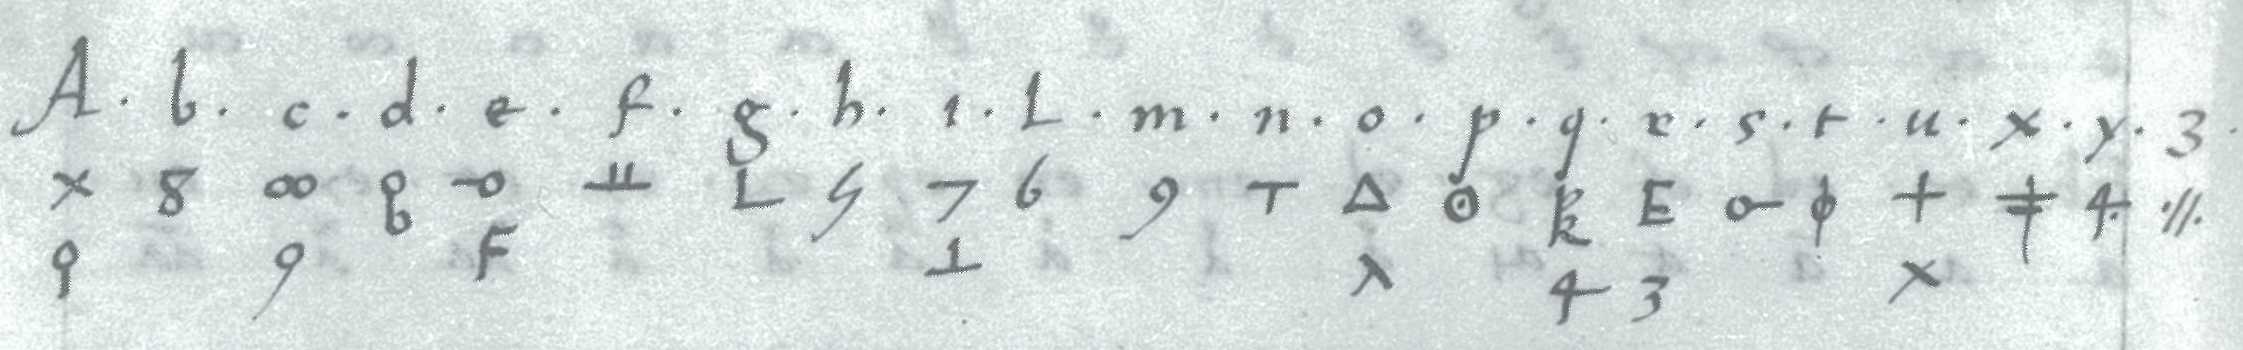 A . b . c . d . e . f . g . h . ı . L . m . n . o . p . q . r . s . t . u . x . y . 3 .
× 8 ∞ –o L 7 6 9 T Δ ⊙ k E o– ϕ + ‡ 4 ·//·
9 F ⊥ λ 4 3 ×